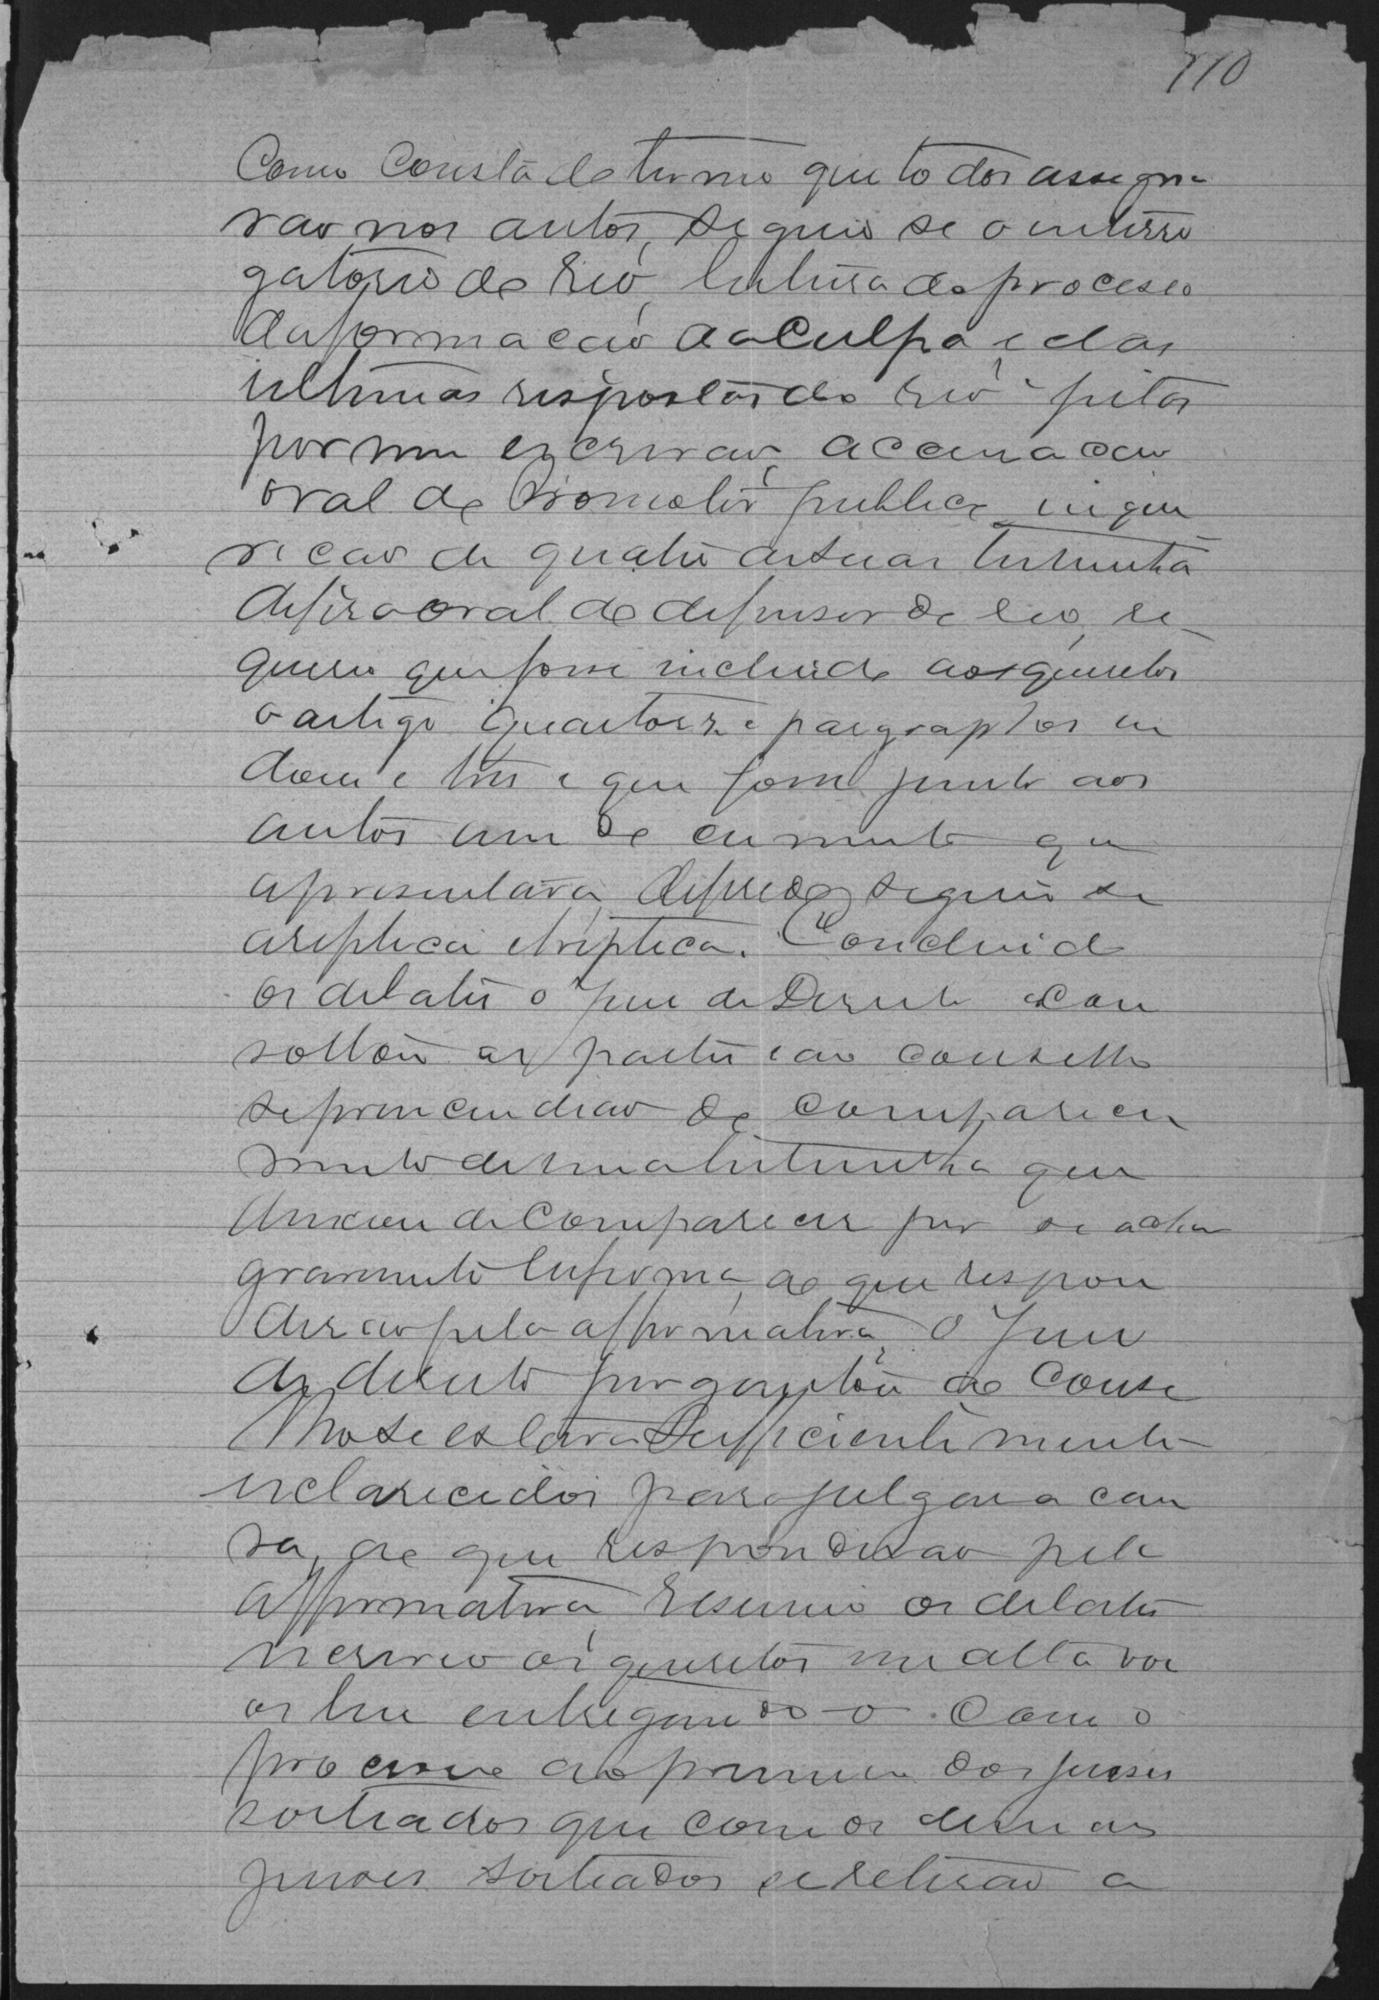 110
Como consta do termo que todos assigna
rão nos autos, seguio se o interro
gatorio do reo, leitura do processo
da formacão da culpa e das
ultimas respostas do reo feitas
por mim escrivão, accusacão
oral do Promotor publico, inque
ricão de quatro testemunha
defesa oral do defensor do reo, re
quereo que fosse incluido aos quesitos
o artigo quartorze paragraphos
dous e tres e que fosse junto aos
autos um documento que
apresentava, deferido, seguio se
a replica e treplica. Concluido
os debates o Juis de Direito con
soltou as partes e ao conselho
se prencindião do compareci
mento de uma testemunha que
deixou de comparecer por se achar
gravemente enferma, ao que respon
derão pela affirmativa, O Juis
de direito perguntou ao Conse
lho se estava sufficientemente
esclarecidos para julgar a cau
sa, ao que responderão pela
affirmativa, resumio os debates
escreveo os quesitos em alta voz
os leu entregando o com o
processo ao primeiro dos juises
sorteados que com os demais
juises sorteados se retirão a